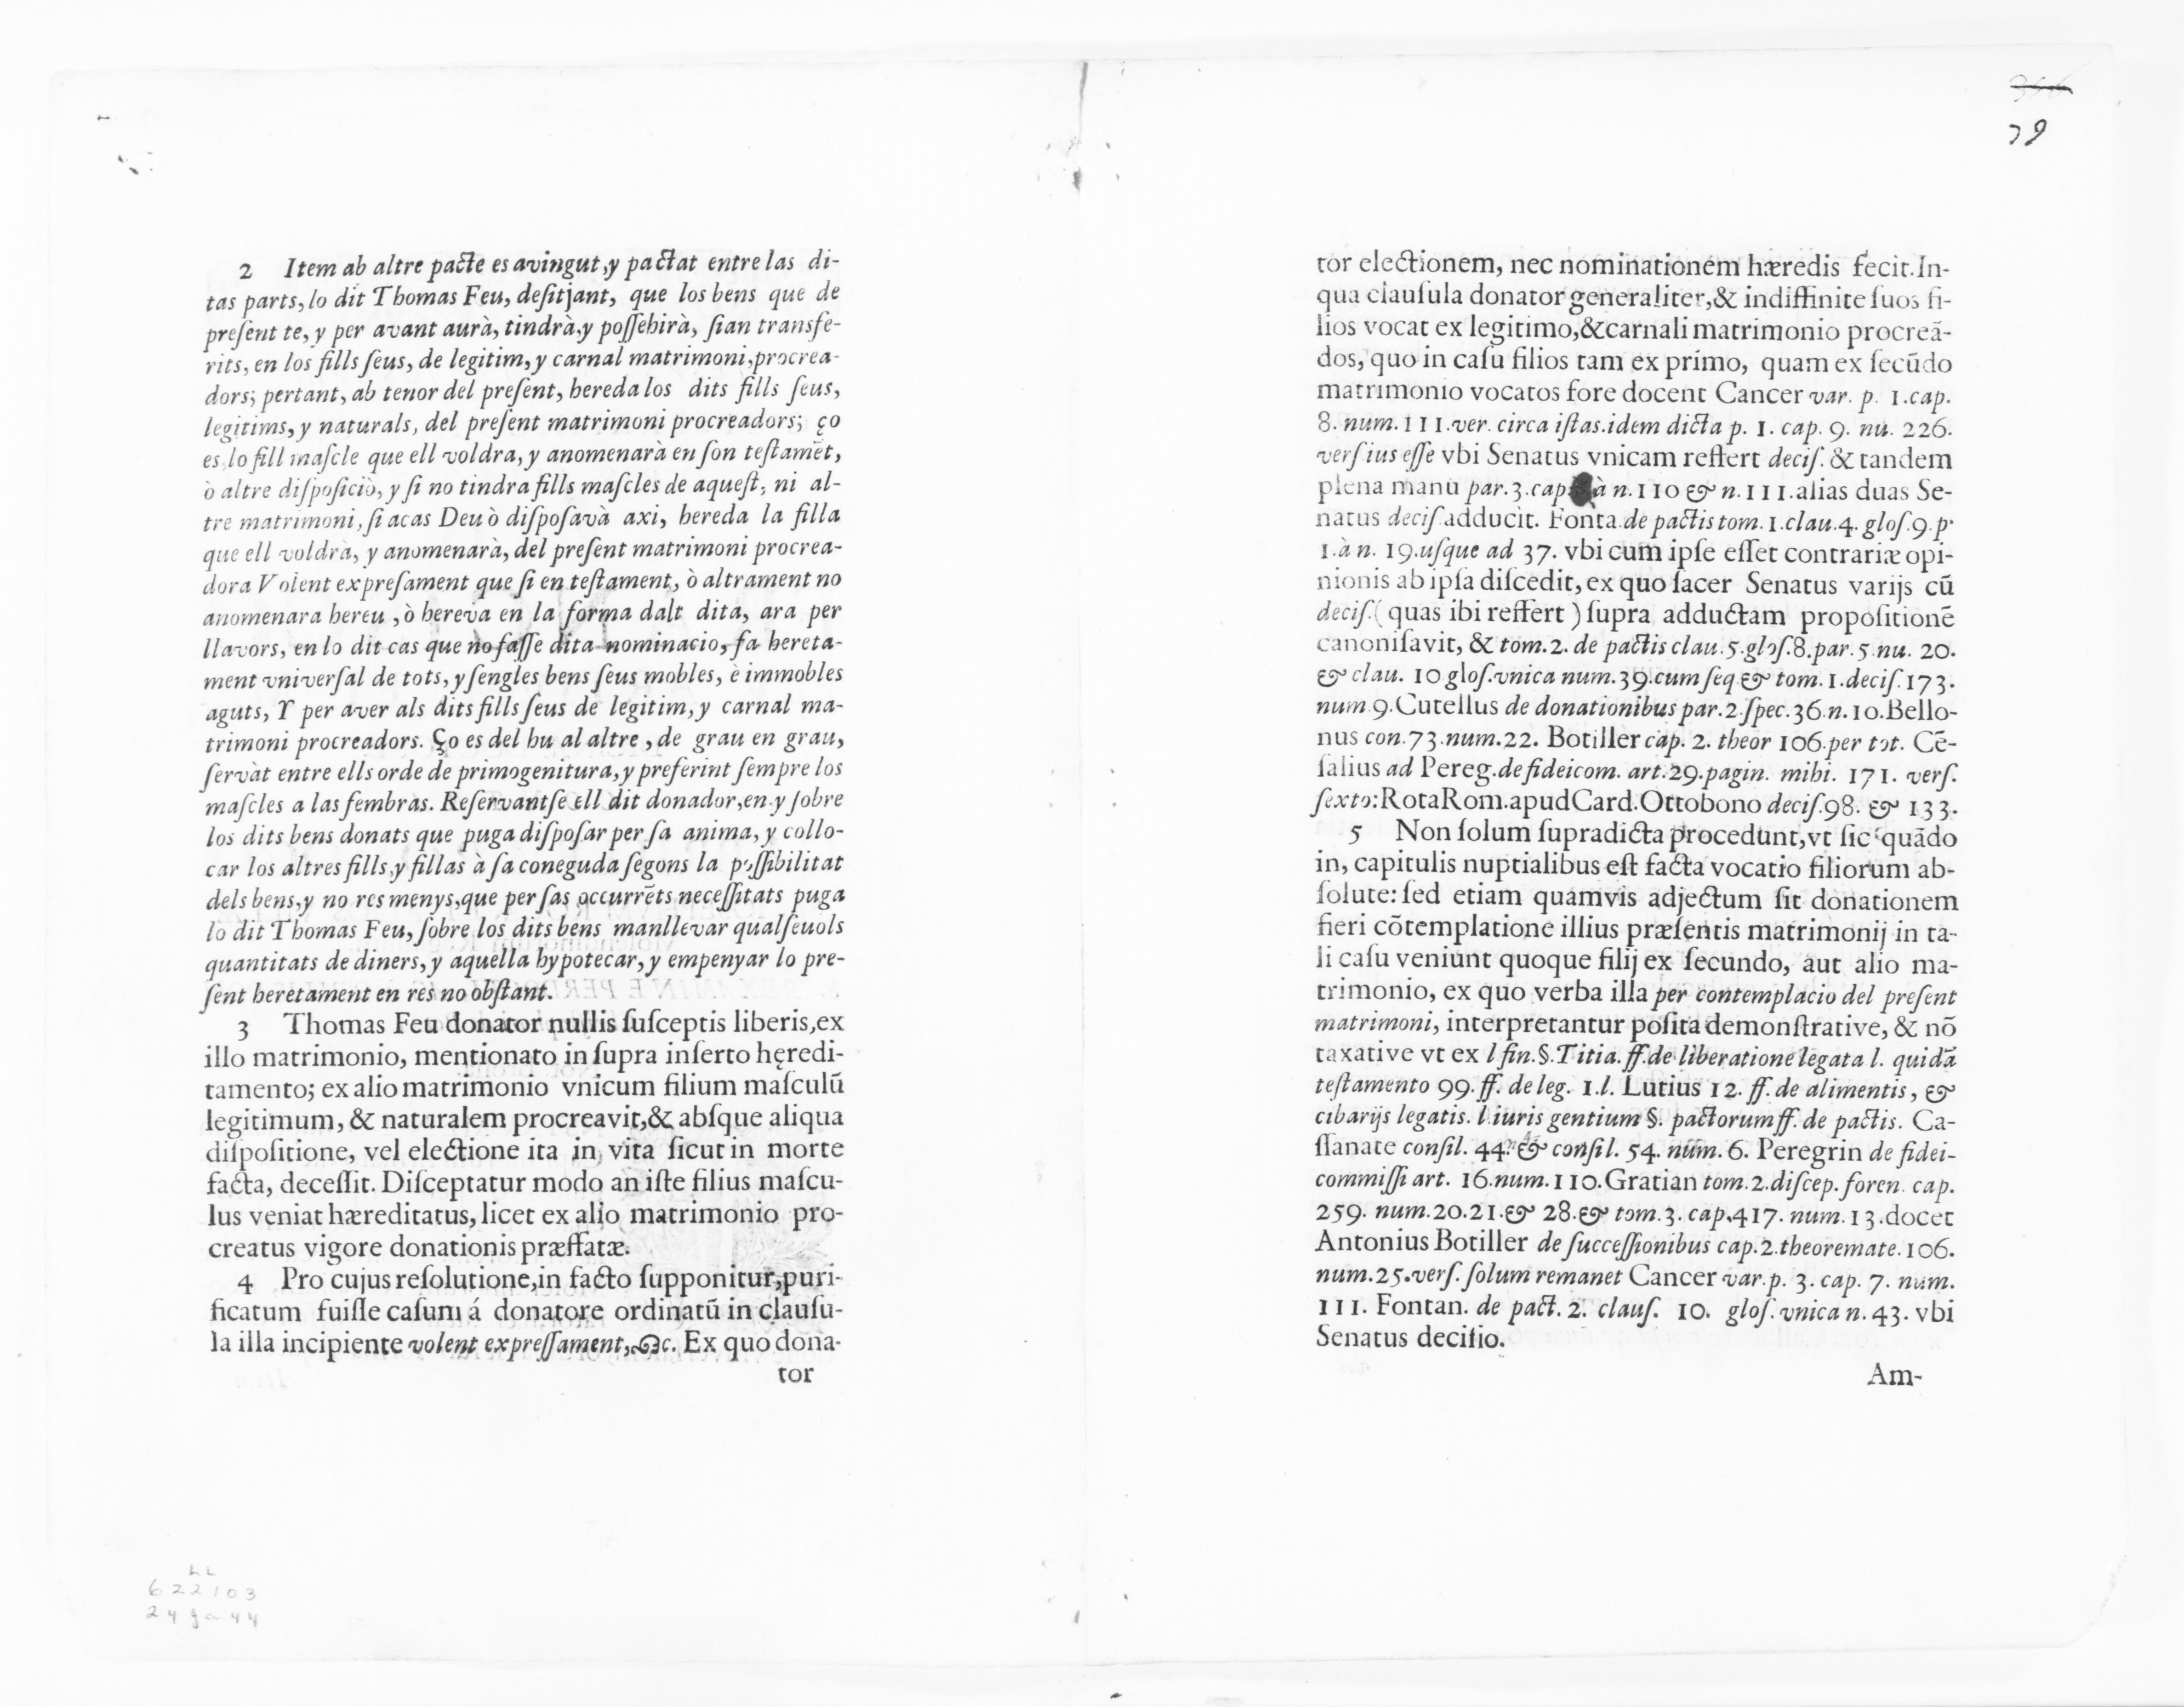 2 Item ab altre pacte es avingut, y pactat entre las di-
tas parts, lo dit Thomas Feu, desitjant, que los bens que de
present te, y per avant aurà, tindrà, y possehirà, sian transfe-
rits, en los fills seus, de legitim, y carnal matrimoni, procrea-
dors; pertant, ab tenor del present, hereda los dits fills seus,
legitims, y naturals, del present matrimoni procreadors; ço
es, lo fill mascle que ell voldra, y anomenarà en son testamẽt,
ò altre disposiciò, y si no tindra fills mascles de aquest, ni al-
tre matrimoni, si acas Deu ò disposavà axi, hereda la filla
que ell voldrà, y anomenarà, del present matrimoni procrea-
dora Volent expresament que si en testament, ò altrament no
anomenara hereu, ò hereva en la forma dalt dita, ara per
llavors, en lo dit cas que no fasse dita nominacio, fa hereta-
ment vniversal de tots, y sengles bens seus mobles, è immobles
aguts, Y per aver als dits fills seus de legitim, y carnal ma-
trimoni procreadors. Ço es del hu al altre, de grau en grau,
servàt entre ells orde de primogenitura, y preferint sempre los
mascles a las fembras. Reservantse ell dit donador, en y sobre
los dits bens donats que puga disposar per sa anima, y collo-
car los altres fills, y fillas à sa coneguda segons la possibilitat
dels bens, y no res menys, que per sas occurrẽts necessitats puga
lo dit Thomas Feu, sobre los dits bens manllevar qualseuols
quantitats de diners, y aquella hypotecar, y empenyar lo pre-
sent heretament en res no obstant.
3 Thomas Feu donator nullis susceptis liberis, ex
illo matrimonio, mentionato in supra inserto hęredi-
tamento; ex alio matrimonio vnicum filium masculũ
legitimum, & naturalem procreavit, & absque aliqua
dispositione, vel electione ita in vita sicut in morte
facta, decessit. Disceptatur modo an iste filius mascu-
lus veniat hæreditatus, licet ex alio matrimonio pro-
creatus vigore donationis præffatæ.
4 Pro cujus resolutione, in facto supponitur, puri-
ficatum fuisse casum á donatore ordinatũ in clausu-
la illa incipiente volent expressament, &c. Ex quo dona-
tor
79
tor electionem, nec nominationem hæredis fecit. In-
qua clausula donator generaliter, & indiffinite suos fi-
lios vocat ex legitimo, & carnali matrimonio procreã-
dos, quo in casu filios tam ex primo, quam ex secũdo
matrimonio vocatos fore docent Cancer var. p. 1. cap.
8. num. 111. ver. circa istas. idem dicta p. 1. cap. 9. nu. 226.
vers ius esse vbi Senatus vnicam reffert decis. & tandem
plena manu par. 3. cap. à n. 110 & n. 111. alias duas Se-
natus decis. adducit. Fonta. de pactis tom. 1. clau. 4. glos. 9. p.
1. à n. 19. usque ad 37. vbi cum ipse esset contrariæ opi-
nionis ab ipsa discedit, ex quo sacer Senatus varijs cũ
decis. ( quas ibi reffert ) supra adductam propositionẽ
canonisavit, & tom. 2. de pactis clau. 5. glos. 8. par. 5. nu. 20.
& clau. 10 glos. vnica num. 39. cum seq. & tom. 1. decis. 173.
num. 9. Cutellus de donationibus par. 2. spec. 36. n. 10. Bello-
nus con. 73. num. 22. Botiller cap. 2. theor 106. per tot. Cẽ-
salius ad Pereg. de fideicom. art. 29. pagin. mihi. 171. vers.
sexto: Rota Rom. apud Card. Ottobono decis. 98. & 133.
5 Non solum supradicta procedunt, vt sic quãdo
in, capitulis nuptialibus est facta vocatio filiorum ab-
solute: sed etiam quamvis adjectum sit donationem
fieri cõtemplatione illius præsentis matrimonij in ta-
li casu veniunt quoque filij ex secundo, aut alio ma-
trimonio, ex quo verba illa per contemplacio del present
matrimoni, interpretantur posita demonstrative, & nõ
taxative vt ex l fin. §. Titia. ff. de liberatione legata l. quidã
testamento 99. ff. de leg. 1. l. Lutius 12. ff. de alimentis, &
cibarijs legatis. l. iuris gentium §. pactorum ff. de pactis. Ca-
ssanate consil. 44. & consil. 54. num. 6. Peregrin de fidei-
commissi art. 16. num. 110. Gratian tom. 2. discep. foren. cap.
259. num. 20. 21. & 28. & tom. 3. cap. 417. num. 13. docet
Antonius Botiller de successionibus cap. 2. theoremate. 106.
num. 25. vers. solum remanet Cancer var. p. 3. cap. 7. num.
111. Fontan. de pact. 2. claus. 10. glos. vnica n. 43. vbi
Senatus decisio.
Am-
622103